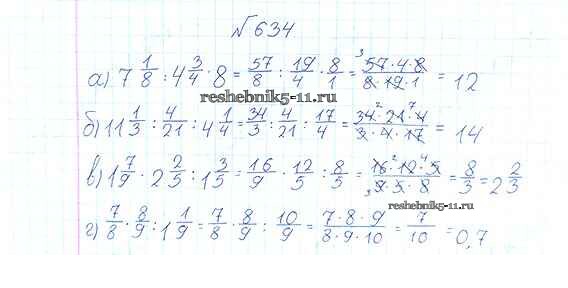 № 634
а) 7 1/8 : 4 3/4 · 8 = 57/8 : 19/4 · 8/1 = 3 57·4·8/8·19·1 = 12
reshebnik5-11.ru
б) 11 1/3 : 4/21 : 4 1/4 = 34/3 : 4/21 : 17/4 = 34 2·21 7·4/3·4·17 = 14
в) 1 7/9 · 2 2/5 : 1 3/5 = 16/9 · 12/5 : 8/5 = 16 2·12 4·5/3 9·5·8 = 8/3 = 2 2/3
reshebnik5-11.ru
г) 7/8 · 8/9 : 1 1/9 = 7/8 · 8/9 : 10/9 = 7·8·9/8·9·10 = 7/10 = 0,7